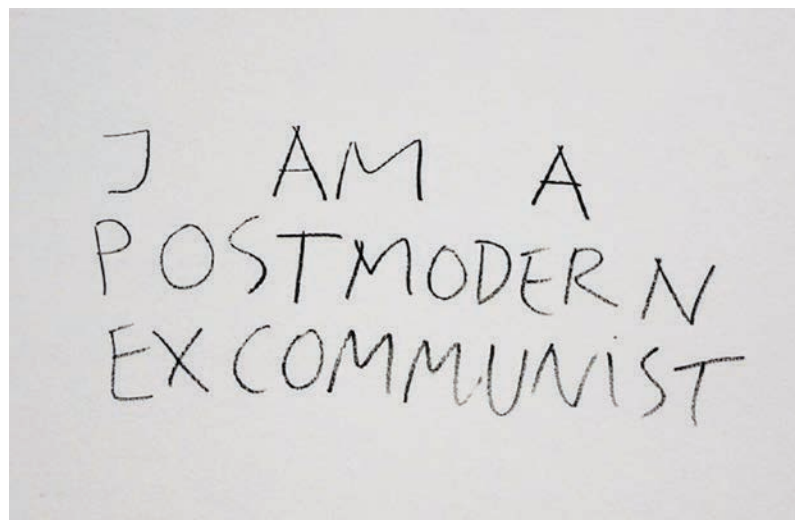 J AM A
POSTMODERN
EXCOMMUNiST